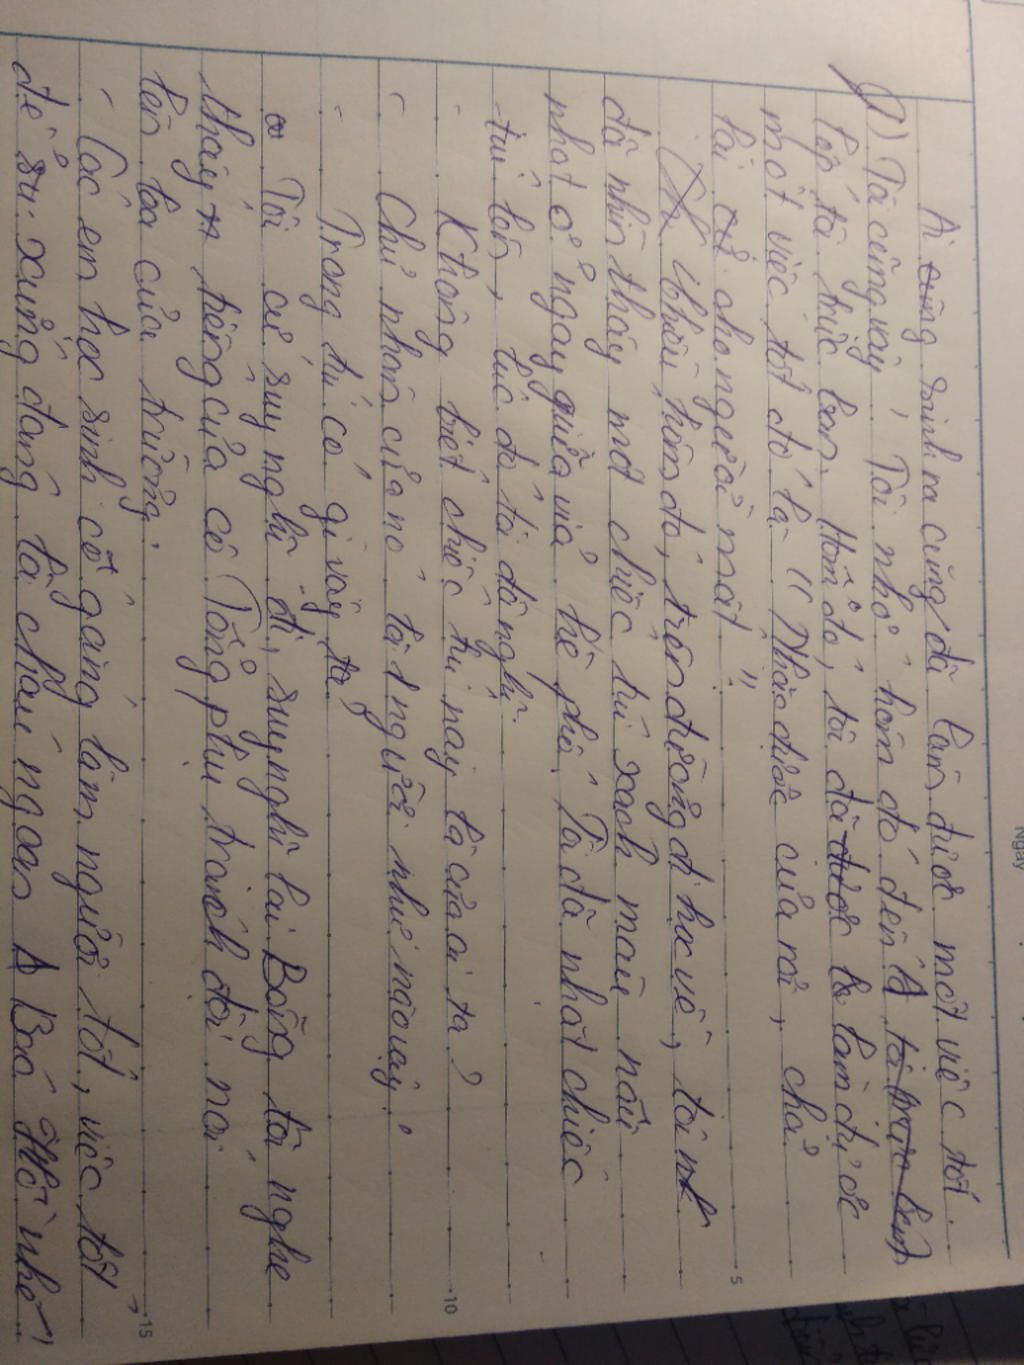 Ngày
Ai sinh ra cũng đã làm được một việc tốt.
Tôi cũng vậy, Tôi nhớ hôm đó đến
lớp tôi trực ban. Hôm đó, tôi đã làm được
một việc tốt đó là "Nhặt được của rơi, trả
lại cho người mất".
Chiều hôm đó, trên đường đi học về, tôi
đã nhìn thấy một chiếc túi xách màu nâu
nhạt ở ngay giữa vỉa hè phố. Tôi đã nhặt chiếc
túi lên, lúc đó tôi đã nghĩ.
- Không biết chiếc túi này là của ai ta?
- Chủ nhân của nó là 1 người như nào vậy?
- Trong túi có gì vậy ta?
Tôi cứ suy nghĩ đi, suy nghĩ lại. Bỗng tôi nghe
thấy tiếng của cô Tổng phụ trách đội nói
trên loa của trường.
- Các em học sinh cố gắng làm người tốt, việc tốt
để sứ xứng đáng là cháu ngoan Bác Hồ nhé
5
10
15